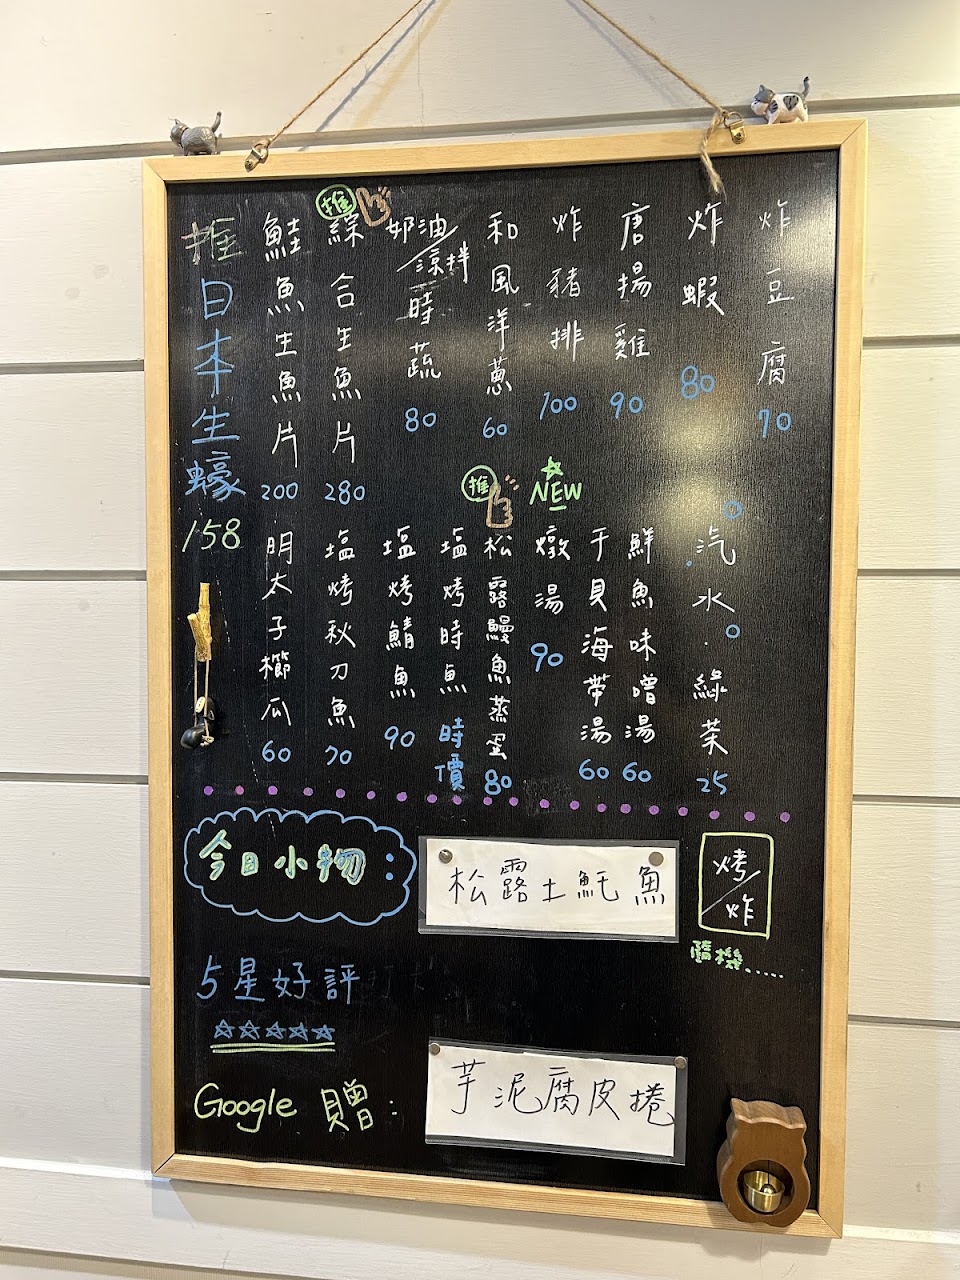 炸豆腐 70
炸蝦 80
唐揚雞 90
炸豬排 100
和風洋蔥 60
奶油/涼拌時蔬 80
推
綜合生魚片 280
鮭魚生魚片 200
推 日本生蠔 158
汽水.綠茶 25
鮮魚味噌湯 60
干貝海帶湯 60
NEW
燉湯 90
推
松露鰻魚蒸蛋 80
塩烤時魚 時價
塩烤鯖魚 90
塩烤秋刀魚 70
明太子櫛瓜 60
今日小物:
松露土魠魚
烤/炸
隨機.....
5星好評
☆☆☆☆☆
Google 贈:
芋泥腐皮捲